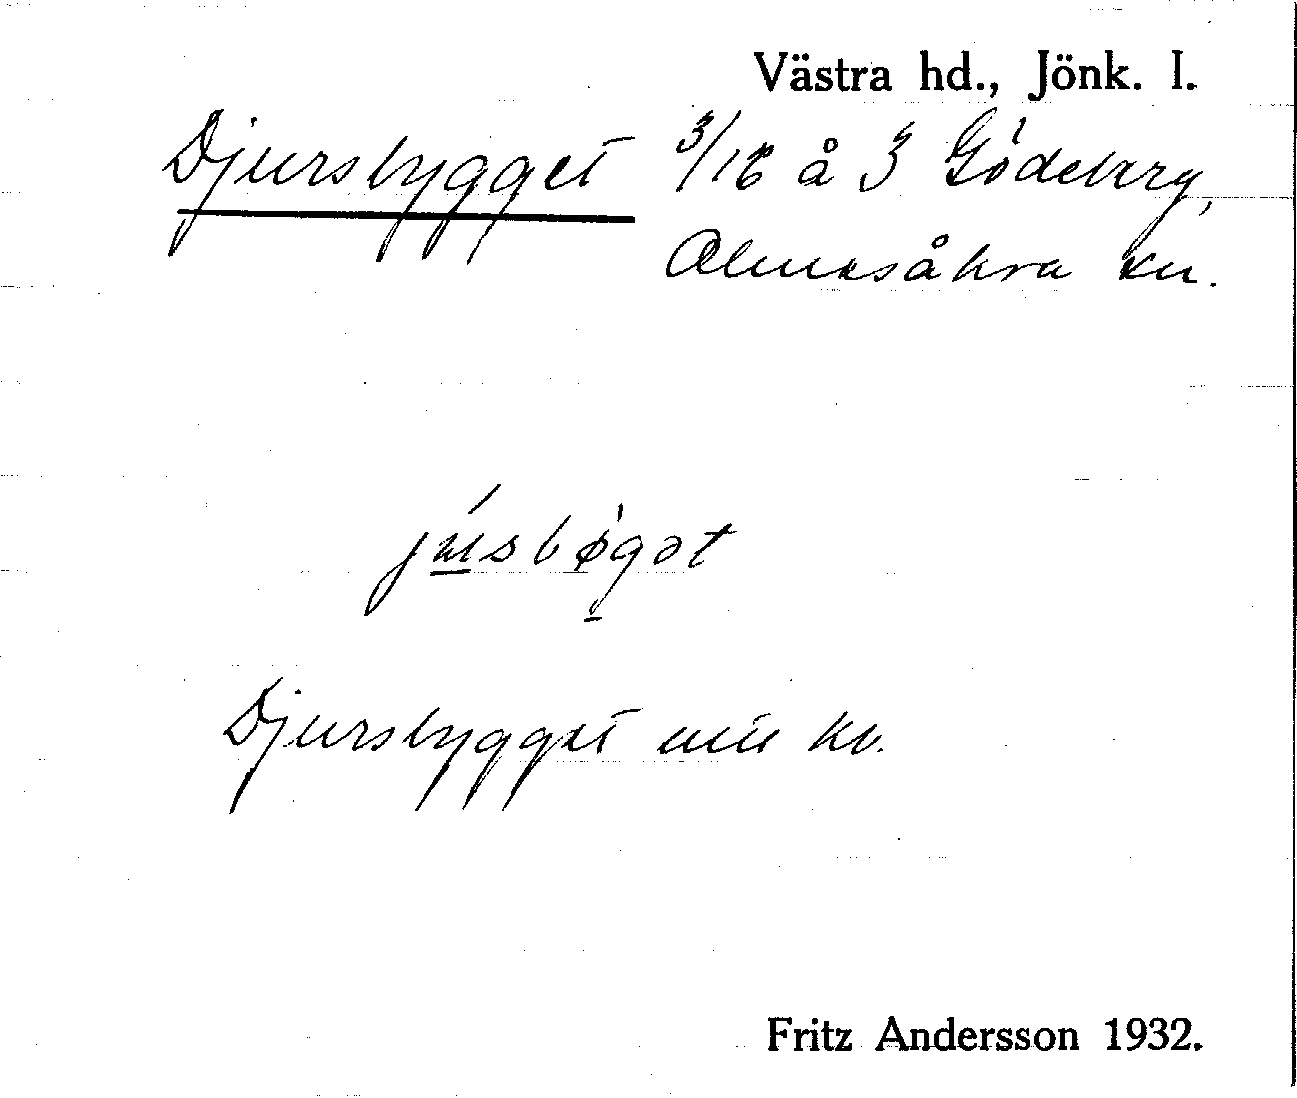 Västra hd., Jönk. l.
Djursbygget 3/16 å 3 Gödeberg,
Almesåkra sn.
jusbøgət
Djursbygget kb.
Fritz Andersson 1932.